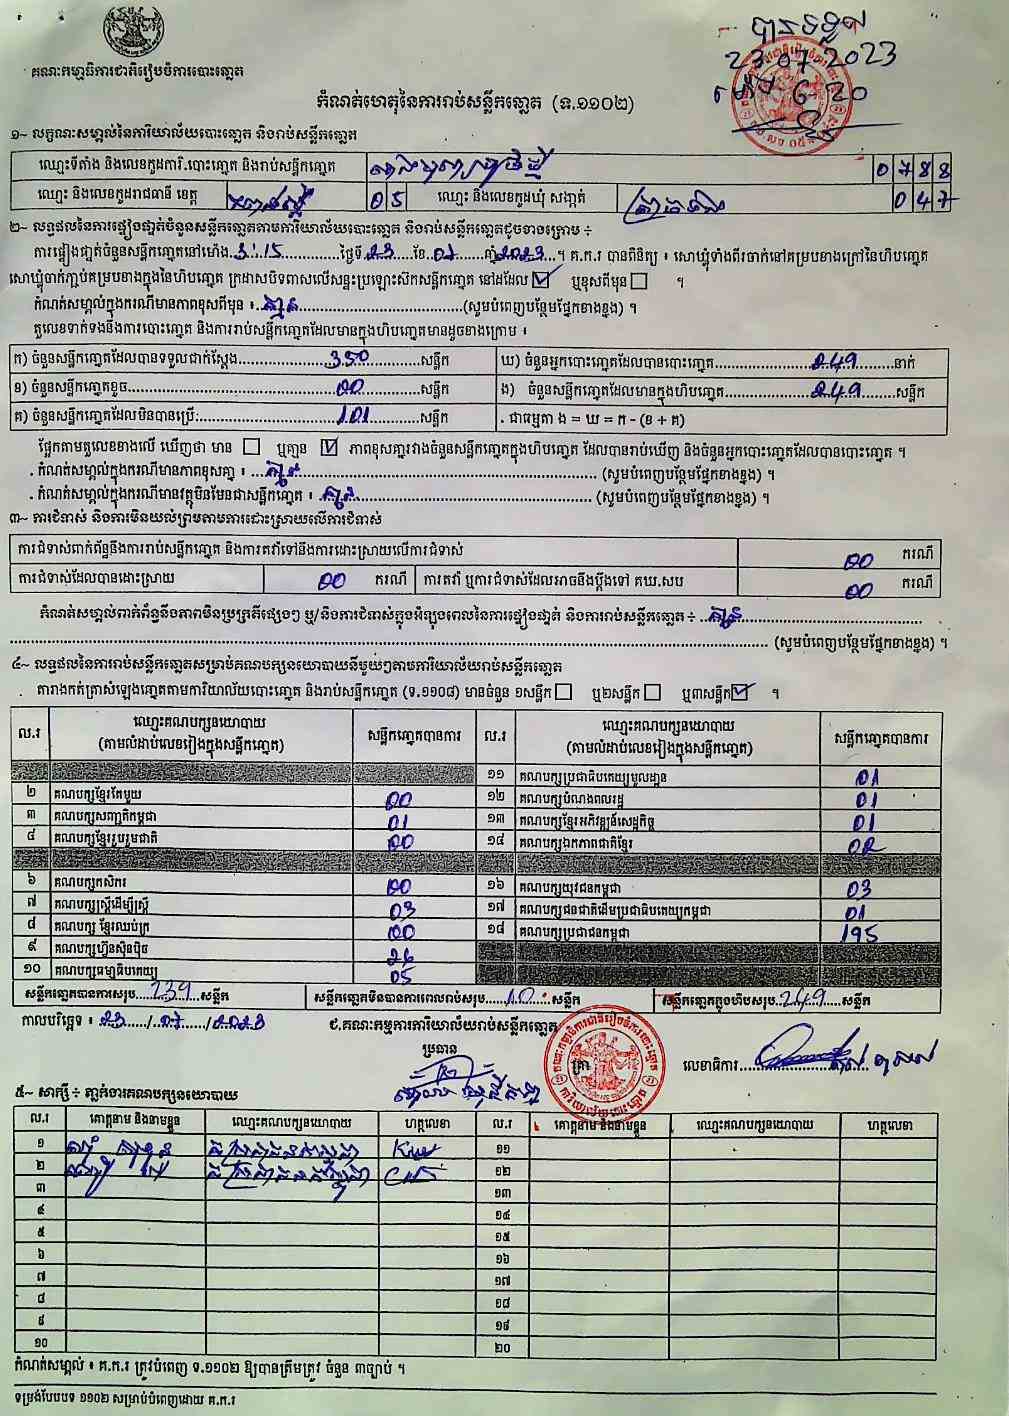 បានទទួល
23.07.2023
ម៉ោង 6-20
គណៈកម្មាធិការជាតិរៀបចំការបោះឆ្នោត
កំណត់ហេតុនៃការរាប់សន្លឹកឆ្នោត (ទ.១១០២)
១~ លក្ខណៈសម្គាល់នៃការិយាល័យបោះឆ្នោត និងរាប់សន្លឹកឆ្នោត
ឈ្មោះទីតាំង និងលេខកូដការិ.បោះឆ្នោត និងរាប់សន្លឹកឆ្នោត 0788
ឈ្មោះ និងលេខកូដរាជធានី ខេត្ត កំពង់ស្ពឺ 05 ឈ្មោះ និងលេខកូដឃុំ សង្កាត់ 047
២~ លទ្ធផលនៃការផ្ទៀងផ្ទាត់ចំនួនសន្លឹកឆ្នោតតាមការិយាល័យបោះឆ្នោត និងរាប់សន្លឹកឆ្នោតដូចខាងក្រោម ÷
ការផ្ទៀងផ្ទាត់ចំនួនសន្លឹកឆ្នោតនៅម៉ោង 3:15 ថ្ងៃទី 23 ខែ 07 ឆ្នាំ 2023 ។ គ.ក.រ បានពិនិត្យ ៖ សោឃ្លុំទាំងពីរចាក់នៅគម្របខាងក្រៅនៃហិបឆ្នោត
សោឃ្លុំចាក់ភ្ជាប់គម្របខាងក្នុងនៃហិបឆ្នោត ក្រដាសបិទពាសលើសន្ទះប្រឡោះសិកសន្លឹកឆ្នោត នៅដដែល ☑ ឬខុសពីមុន ☐ ។
កំណត់សម្គាល់ក្នុងករណីមានភាពខុសពីមុន ៖ គ្មាន (សូមបំពេញបន្ថែមផ្នែកខាងខ្នង) ។
តួលេខទាក់ទងនឹងការបោះឆ្នោត និងការរាប់សន្លឹកឆ្នោតដែលមានក្នុងហិបឆ្នោតមានដូចខាងក្រោម ៖
ក) ចំនួនសន្លឹកឆ្នោតដែលបានទទួលជាក់ស្តែង 350 សន្លឹក ឃ) ចំនួនអ្នកបោះឆ្នោតដែលបានបោះឆ្នោត 249 នាក់
ខ) ចំនួនសន្លឹកឆ្នោតខូច 00 សន្លឹក ង) ចំនួនសន្លឹកឆ្នោតដែលមានក្នុងហិបឆ្នោត 249 សន្លឹក
គ) ចំនួនសន្លឹកឆ្នោតដែលមិនបានប្រើ: 101 សន្លឹក . ជាធម្មតា ង = ឃ = ក - (ខ + គ)
ផ្អែកតាមតួលេខខាងលើ ឃើញថា មាន ☐ ឬគ្មាន ☑ ភាពខុសគ្នារវាងចំនួនសន្លឹកឆ្នោតក្នុងហិបឆ្នោត ដែលបានរាប់ឃើញ និងចំនួនអ្នកបោះឆ្នោតដែលបានបោះឆ្នោត ។
. កំណត់សម្គាល់ក្នុងករណីមានភាពខុសគ្នា ៖ គ្មាន (សូមបំពេញបន្ថែមផ្នែកខាងខ្នង) ។
. កំណត់សម្គាល់ក្នុងករណីមានវត្ថុមិនមែនជាសន្លឹកឆ្នោត ៖ គ្មាន (សូមបំពេញបន្ថែមផ្នែកខាងខ្នង) ។
៣~ ការជំទាស់ និងការមិនយល់ព្រមតាមការដោះស្រាយលើការជំទាស់
ការជំទាស់ពាក់ព័ន្ធនឹងការរាប់សន្លឹកឆ្នោត និងការតវ៉ាទៅនឹងការដោះស្រាយលើការជំទាស់ 00 ករណី
ការជំទាស់ដែលបានដោះស្រាយ 00 ករណី ការតវ៉ា ឬការជំទាស់ដែលអាចនឹងប្តឹងទៅ គឃ.សប 00 ករណី
កំណត់សម្គាល់ពាក់ព័ន្ធនឹងភាពមិនប្រក្រតីផ្សេងៗ ឬ/និងការជំទាស់ក្នុងអំឡុងពេលនៃការផ្ទៀងផ្ទាត់ និងការរាប់សន្លឹកឆ្នោត ÷ គ្មាន
(សូមបំពេញបន្ថែមផ្នែកខាងខ្នង) ។
៤~ លទ្ធផលនៃការរាប់សន្លឹកឆ្នោតសម្រាប់គណបក្សនយោបាយនីមួយៗតាមការិយាល័យរាប់សន្លឹកឆ្នោត
តារាងកត់ត្រាសំឡេងឆ្នោតតាមការិយាល័យបោះឆ្នោត និងរាប់សន្លឹកឆ្នោត (ទ.១១០៨) មានចំនួន ១សន្លឹក ☐ ឬ២សន្លឹក ☐ ឬ៣សន្លឹក ☑ ។
ល.រ ឈ្មោះគណបក្សនយោបាយ (តាមលំដាប់លេខរៀងក្នុងសន្លឹកឆ្នោត) សន្លឹកឆ្នោតបានការ ល.រ ឈ្មោះគណបក្សនយោបាយ (តាមលំដាប់លេខរៀងក្នុងសន្លឹកឆ្នោត) សន្លឹកឆ្នោតបានការ
១១ គណបក្សប្រជាធិបតេយ្យមូលដ្ឋាន 01
២ គណបក្សខ្មែរតែមួយ 00 ១២ គណបក្សបំណងពលរដ្ឋ 01
៣ គណបក្សសញ្ជាតិកម្ពុជា 01 ១៣ គណបក្សខ្មែរអភិវឌ្ឍន៍សេដ្ឋកិច្ច 01
៤ គណបក្សខ្មែររួបរួមជាតិ 00 ១៤ គណបក្សឯកភាពជាតិខ្មែរ 02
៦ គណបក្សកសិករ 00 ១៦ គណបក្សយុវជនកម្ពុជា 03
៧ គណបក្សស្ត្រីដើម្បីស្ត្រី 03 ១៧ គណបក្សជនជាតិដើមប្រជាធិបតេយ្យកម្ពុជា 01
៨ គណបក្ស ខ្មែរឈប់ក្រ 00 ១៨ គណបក្សប្រជាជនកម្ពុជា 195
៩ គណបក្សហ៊្វុនស៊ិនប៉ិច 26
១០ គណបក្សធម្មាធិបតេយ្យ 05
សន្លឹកឆ្នោតបានការសរុប 239 សន្លឹក សន្លឹកឆ្នោតមិនបានការពេលរាប់សរុប 10 សន្លឹក សន្លឹកឆ្នោតក្នុងហិបសរុប 249 សន្លឹក
កាលបរិច្ឆេទ ៖ 23/07/2023 ជ.គណៈកម្មការការិយាល័យរាប់សន្លឹកឆ្នោត
ប្រធាន ត្រា លេខាធិការ
៥~ សាក្សី ÷ ភ្នាក់ងារគណបក្សនយោបាយ
ល.រ គោត្តនាម និងនាមខ្លួន ឈ្មោះគណបក្សនយោបាយ ហត្ថលេខា ល.រ គោត្តនាម និងនាមខ្លួន ឈ្មោះគណបក្សនយោបាយ ហត្ថលេខា
១ គ.ប្រជាជនកម្ពុជា ១១
២ គ.ប្រជាជនកម្ពុជា ១២
៣ ១៣
៤ ១៤
៥ ១៥
៦ ១៦
៧ ១៧
៨ ១៨
៩ ១៩
១០ ២០
កំណត់សម្គាល់ ៖ គ.ក.រ ត្រូវបំពេញ ទ.១១០២ ឱ្យបានត្រឹមត្រូវ ចំនួន ៣ច្បាប់ ។
ទម្រង់បែបបទ ១១០២ សម្រាប់បំពេញដោយ គ.ក.រ